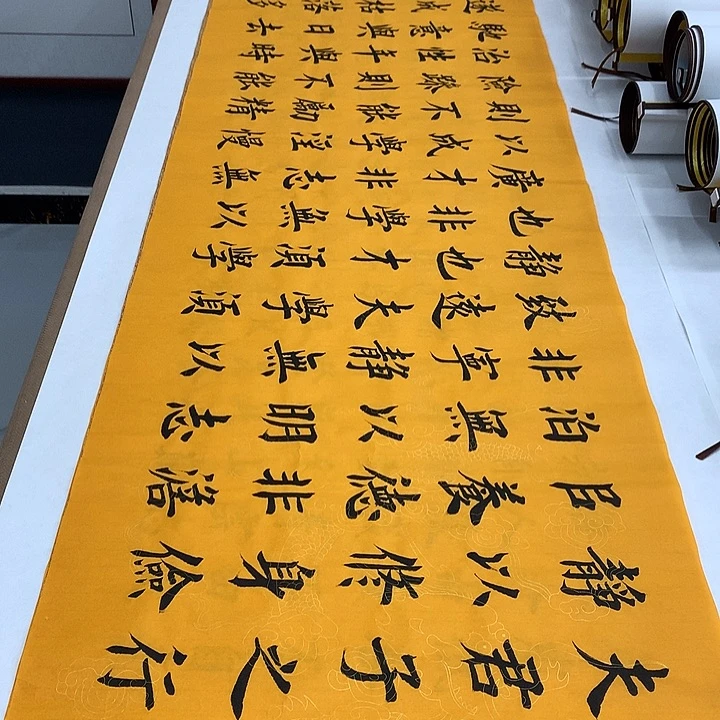 夫君子之行
靜以修身儉
㠯養德非澹
泊無以明志
非寧靜無以
致遠夫學須
靜也才須學
也非學無以
廣才非志無
以成學淫慢
則不能勵精
險躁則不能
治性年與時
馳意與日去
遂成枯落多